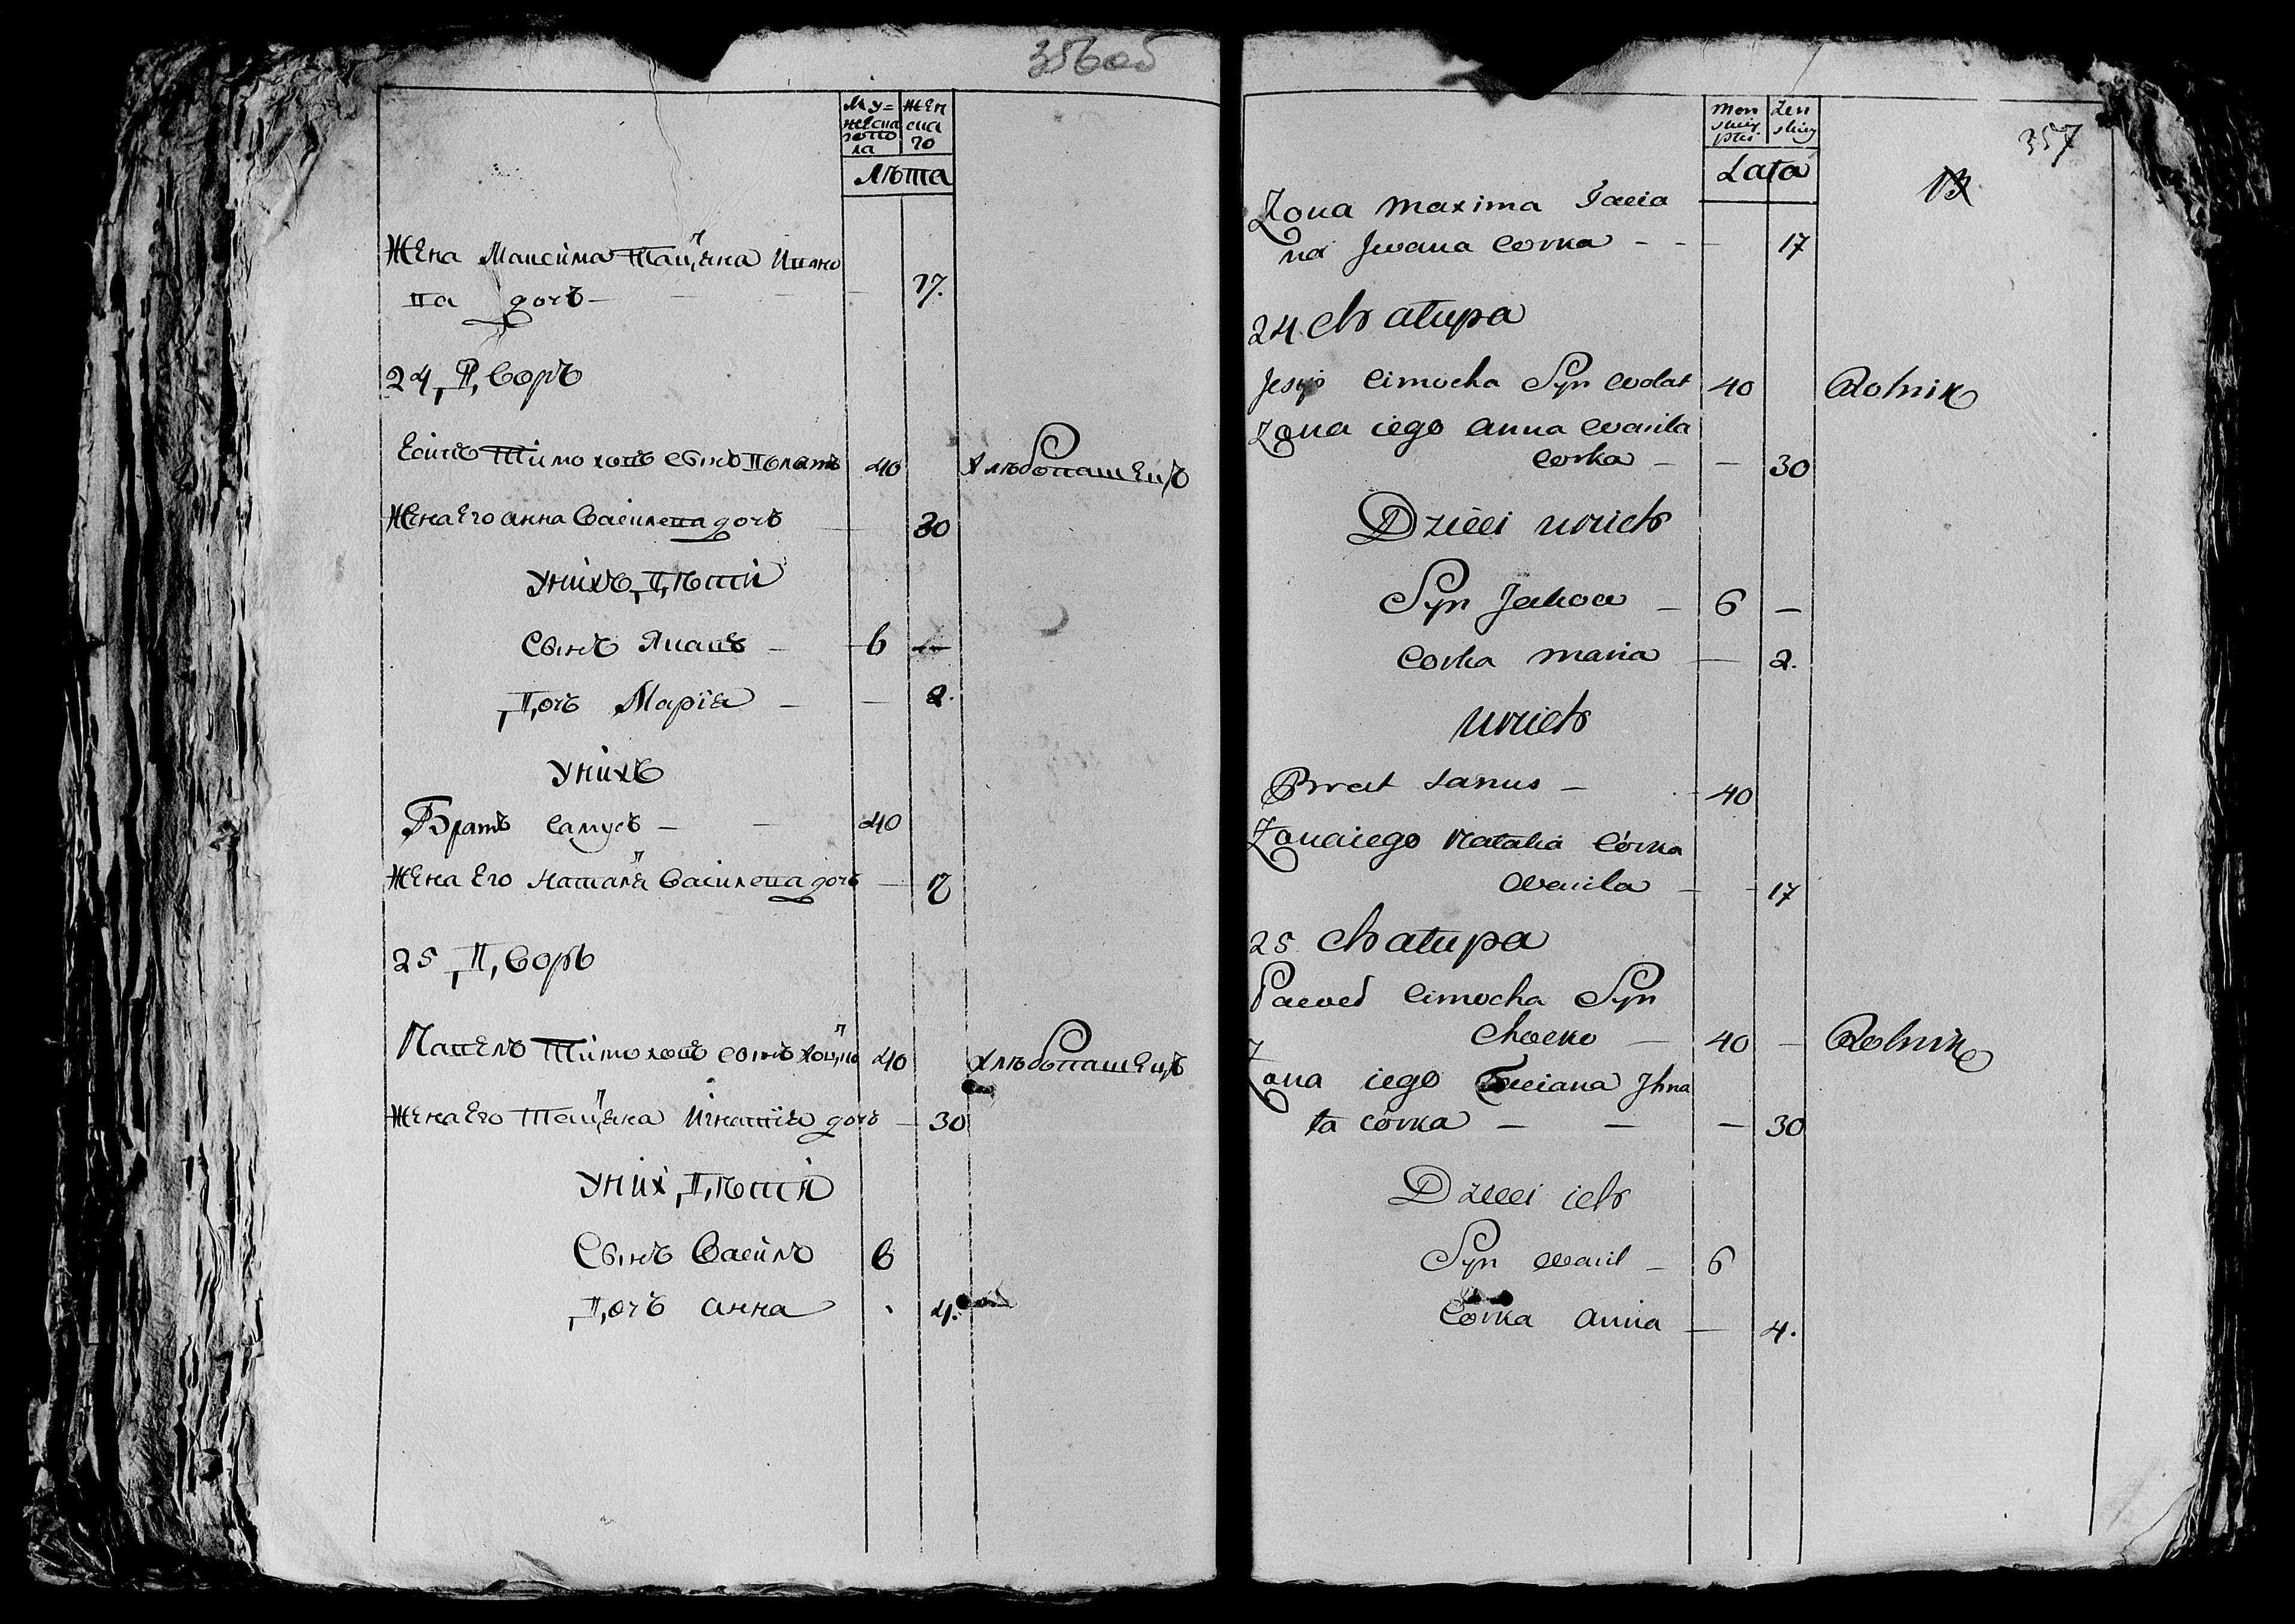 356 об
Му=
жеска
го по
ла
жен
ска
го
Лѣта
Жена Максима Тац,яна Ивано
ва дочь
17.
24, Д,воръ
Есипъ Тимоховъ сынъ
40
Хлѣбопашец,ъ
Жена Его анна Василева дочь
30
У них Д,ѣти
Сынъ Якавъ
6
Д,очь Марія
2.
У нихъ
Братъ Самусь
40
Жена Его Наталя Василева дочь
17
25 Д,воръ
Павелъ Тимоховъ сынъ
40
Хлѣбопашец,ъ
Жена Его Тац,яна Игнатія дочь
30
У них Д,ѣти
Сынъ Василъ
6
Д,очь анна
4.
357
Men
skiey
płci
Zen
skiey
Lata
Zona Maxima Tacia
na Jwana Corka
17
24 Chałupa
Jesyp Cimocha Syn
40
Rolnik
Zona iego Anna Wasila
Corka
30
Dzieci u nich
Syn Jakow
6
Corka Maria
2.
U nich
Brat Samus
40
Zona iego Natalia Córka
Wasila
17
25 Chałupa
Paweł Cimocha Syn
40
Rolnik
Zona iego Taciana Jhna
ta córka
30
Dzieci ich
Syn Wasil
6
Córka Anna
4.